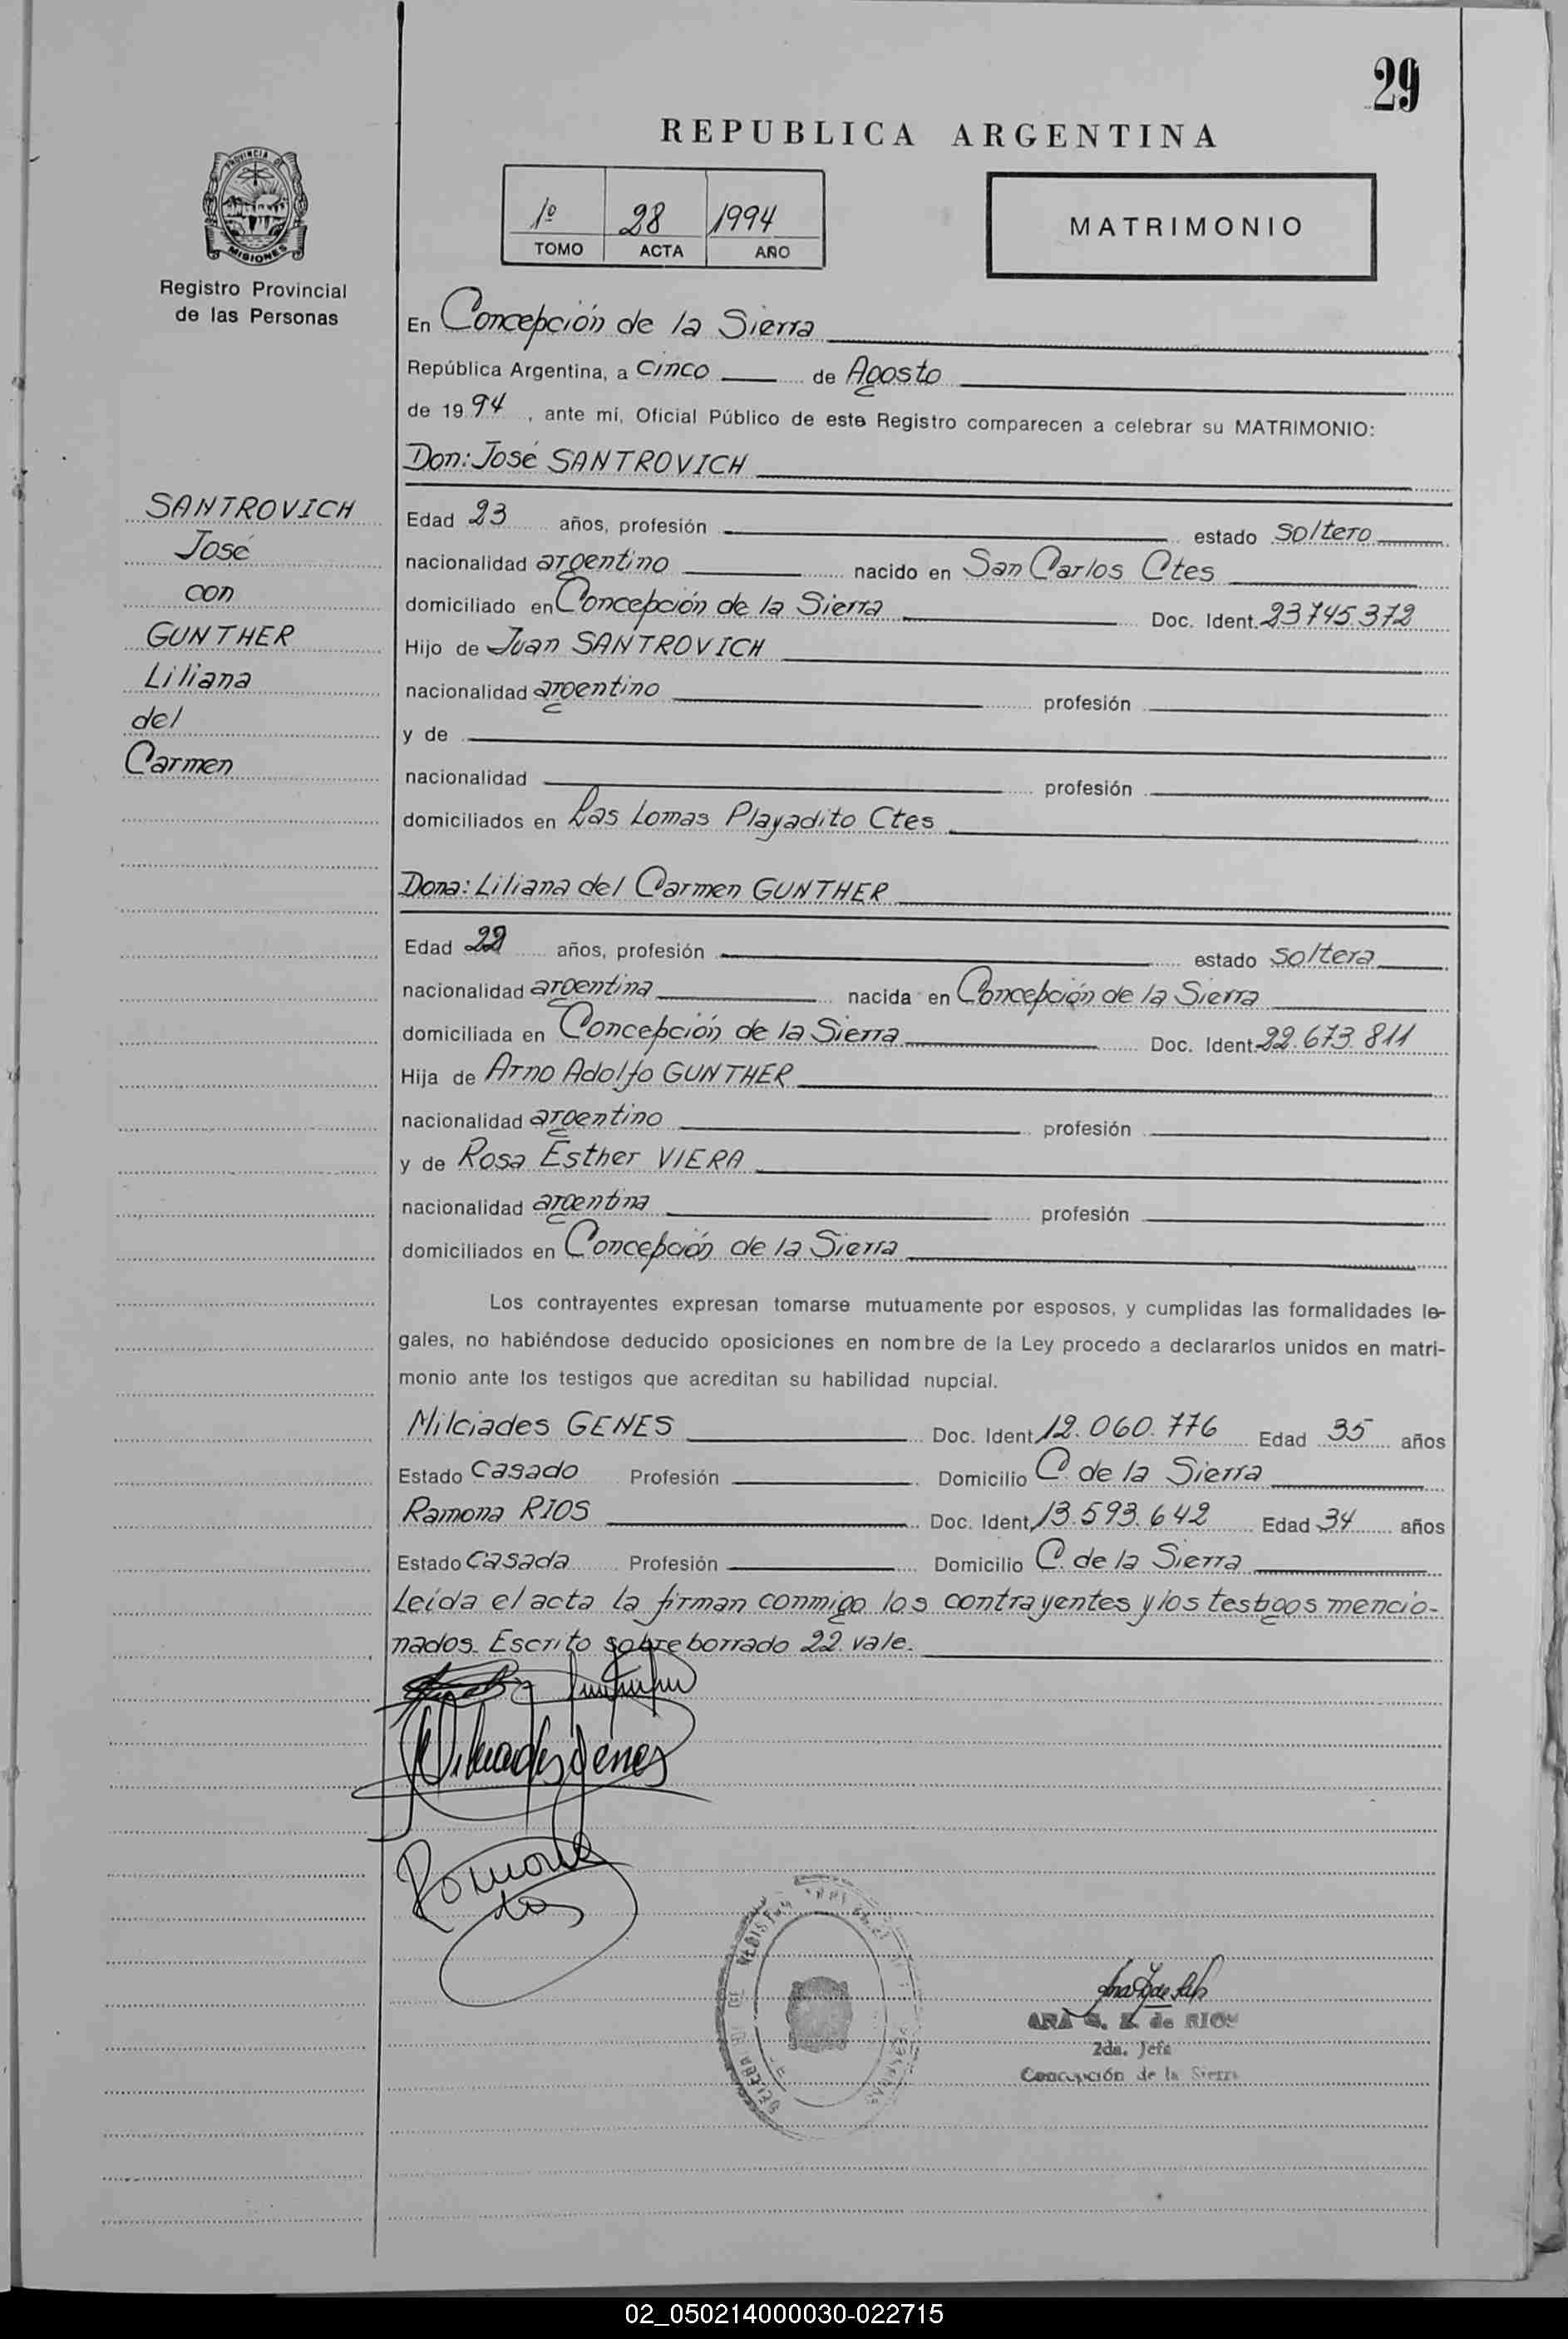 29
REPUBLICA ARGENTINA
PROVINCIA DE
MISIONES
Registro Provincial
de las Personas
1º 28 1994
TOMO ACTA AÑO
MATRIMONIO
En Concepción de la Sierra
República Argentina, a Cinco de Agosto
de 1994, ante mí, Oficial Público de este Registro comparecen a celebrar su MATRIMONIO:
Don: José SANTROVICH
SANTROVICH
José
con
GUNTHER
Liliana
del
Carmen
Edad 23 años, profesión estado soltero
nacionalidad argentino nacido en San Carlos Ctes
domiciliado en Concepción de la Sierra Doc. Ident. 23745.372
Hijo de Juan SANTROVICH
nacionalidad argentino profesión
y de
nacionalidad profesión
domiciliados en Las Lomas Playadito Ctes
Dona: Liliana del Carmen GUNTHER
Edad 22 años, profesión estado soltera
nacionalidad argentina nacida en Concepción de la Sierra
domiciliada en Concepción de la Sierra Doc. Ident. 22.673.811
Hija de Arno Adolfo GUNTHER
nacionalidad argentino profesión
y de Rosa Esther VIERA
nacionalidad argentina profesión
domiciliados en Concepción de la Sierra
Los contrayentes expresan tomarse mutuamente por esposos, y cumplidas las formalidades le-
gales, no habiéndose deducido oposiciones en nombre de la Ley procedo a declararlos unidos en matri-
monio ante los testigos que acreditan su habilidad nupcial.
Milciades GENES Doc. Ident. 12.060.776 Edad 35 años
Estado Casado Profesión Domicilio C. de la Sierra
Ramona RIOS Doc. Ident. 13.593.642 Edad 34 años
Estado Casada Profesión Domicilio C. de la Sierra
Leída el acta la firman conmigo los contrayentes y los testigos mencio-
nados. Escrito sobre borrado 22. vale.
Milciades Genes
Ramona
de RIOS
2da. Jefa
Concepción de la Sierra
02_050214000030-022715